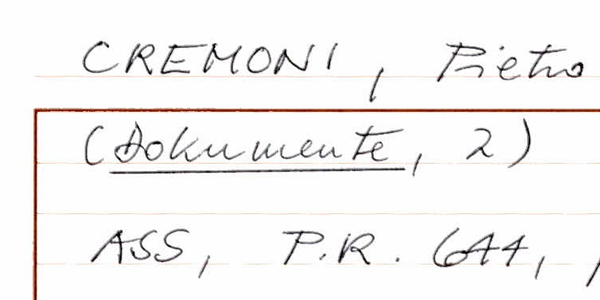 CREMONI, Pietro
(Dokumente, 2)
ASS, P.R. 644,